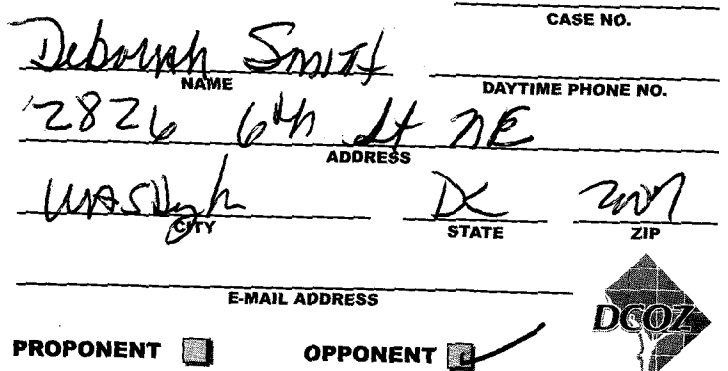 CASE NO.
Deborah Smith
NAME
DAYTIME PHONE NO.
2826 6th St NE
ADDRESS
Washington DC
CITY STATE ZIP
E-MAIL ADDRESS
DCOZ
PROPONENT OPPONENT